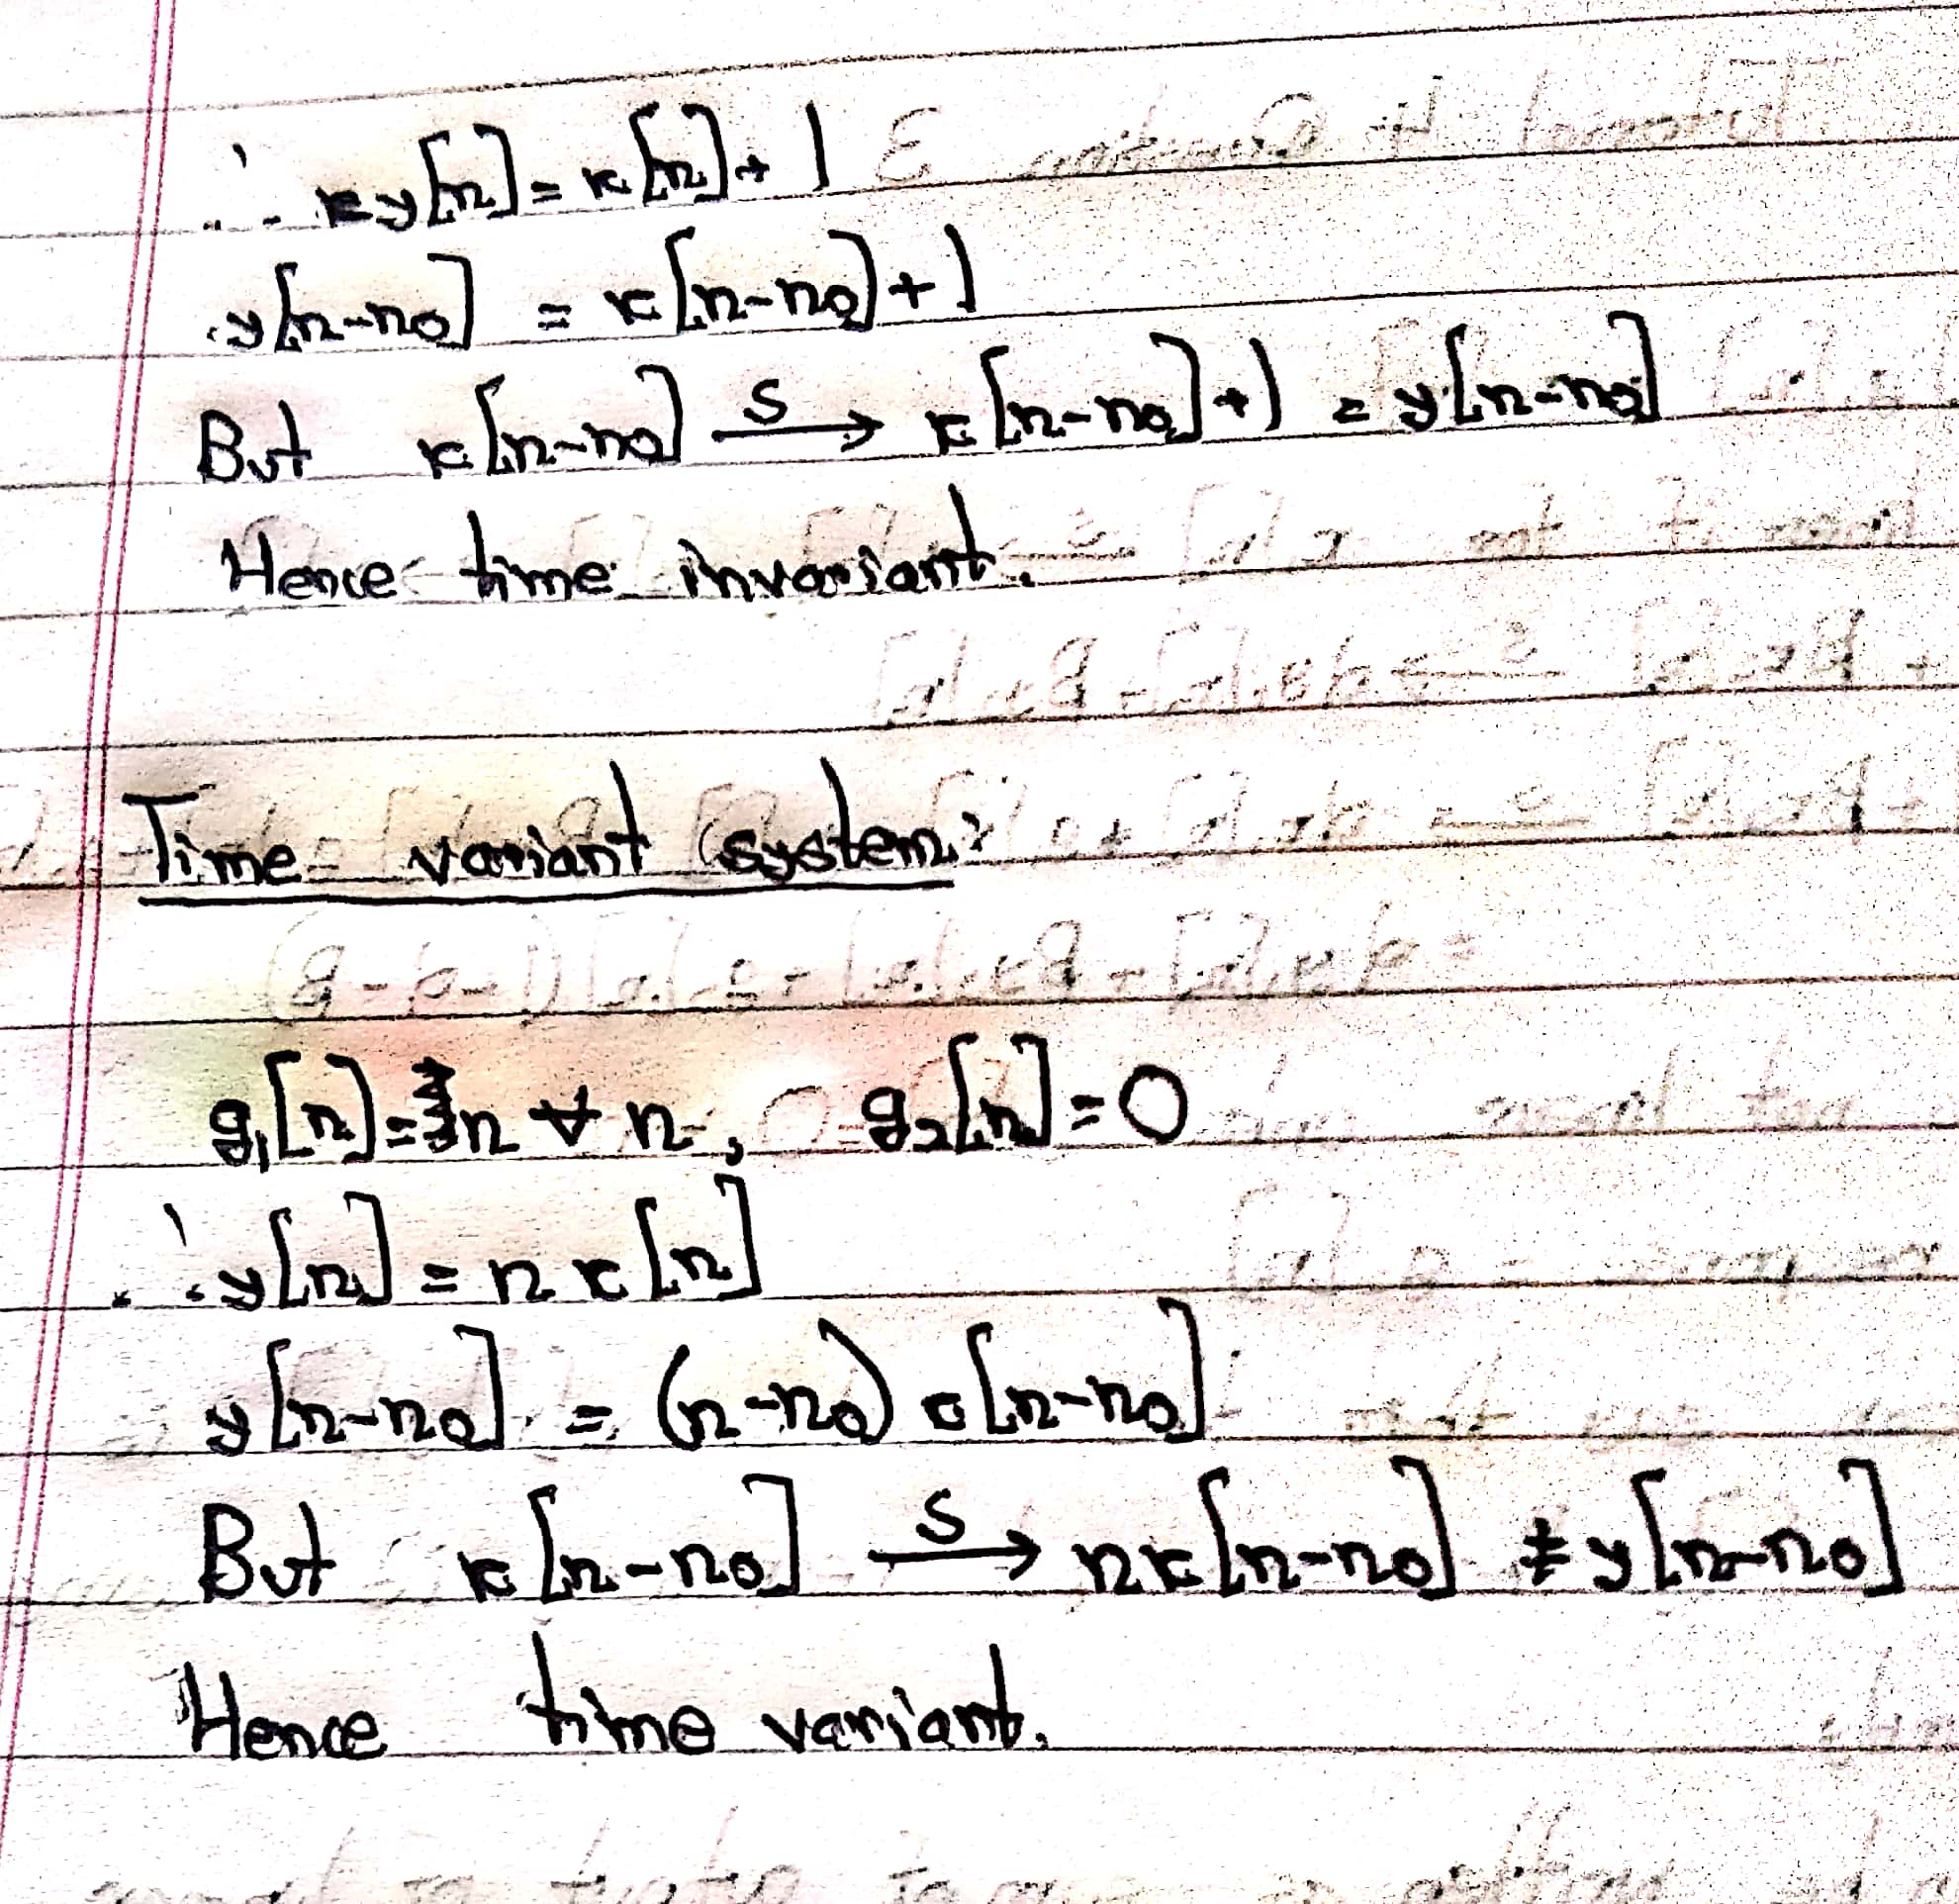 ∴ y[n] = x[n] + 1
y[n-n₀] = x[n-n₀] + 1
But x[n-n₀] —S→ x[n-n₀] + 1 = y[n-n₀]
Hence time invariant.
Time variant system:
g₁[n] = n ∀ n, g₂[n] = 0
∴ y[n] = n x[n]
y[n-n₀] = (n-n₀) x[n-n₀]
But x[n-n₀] —S→ n x[n-n₀] ≠ y[n-n₀]
Hence time variant.